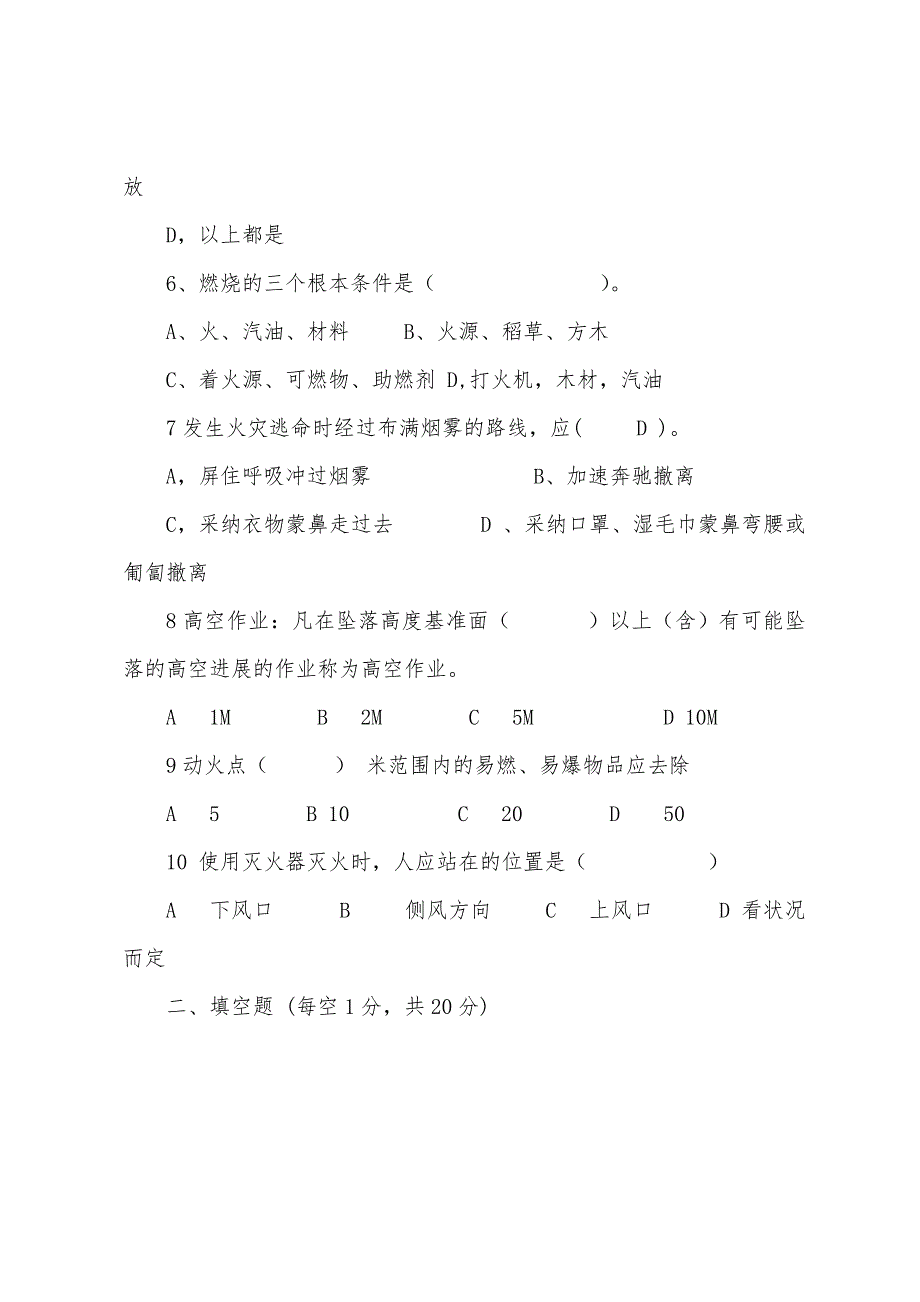 放
D，以上都是
6、燃烧的三个根本条件是（ ）。
A、火、汽油、材料 B、火源、稻草、方木
C、着火源、可燃物、助燃剂 D,打火机，木材，汽油
7发生火灾逃命时经过布满烟雾的路线，应( D )。
A，屏住呼吸冲过烟雾 B、加速奔驰撤离
C，采纳衣物蒙鼻走过去 D 、采纳口罩、湿毛巾蒙鼻弯腰或
匍匐撤离
8高空作业：凡在坠落高度基准面（ ）以上（含）有可能坠
落的高空进展的作业称为高空作业。
A 1M B 2M C 5M D 10M
9动火点（ ） 米范围内的易燃、易爆物品应去除
A 5 B 10 C 20 D 50
10 使用灭火器灭火时，人应站在的位置是（ ）
A 下风口 B 侧风方向 C 上风口 D 看状况
而定
二、填空题 (每空1分，共20分)